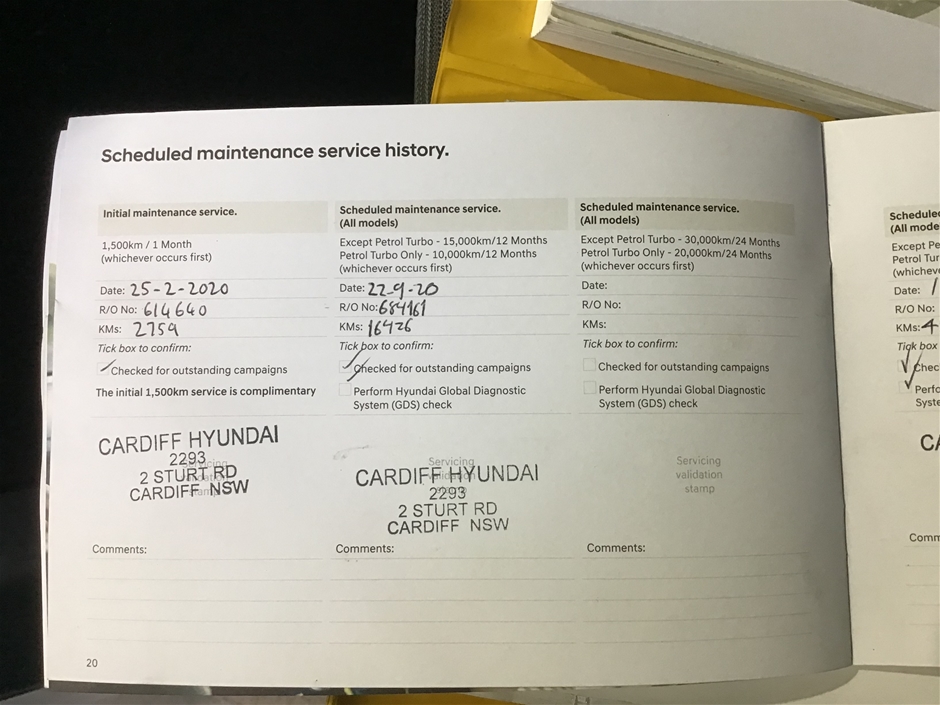 Scheduled maintenance service history.
Initial maintenance service.
1,500km / 1 Month
(whichever occurs first)
Date: 25-2-2020
R/O No: 614640
KMs: 2759
Tick box to confirm:
Checked for outstanding campaigns
The initial 1,500km service is complimentary
CARDIFF HYUNDAI
2293
2 STURT RD
CARDIFF NSW
Comments:
Scheduled maintenance service.
(All models)
Except Petrol Turbo - 15,000km/12 Months
Petrol Turbo Only - 10,000km/12 Months
(whichever occurs first)
Date: 22-9-20
R/O No: 684161
KMs: 16426
Tick box to confirm:
Checked for outstanding campaigns
Perform Hyundai Global Diagnostic
System (GDS) check
Servicing
CARDIFF HYUNDAI
2293
2 STURT RD
CARDIFF NSW
Comments:
Scheduled maintenance service.
(All models)
Except Petrol Turbo - 30,000km/24 Months
Petrol Turbo Only - 20,000km/24 Months
(whichever occurs first)
Date:
R/O No:
KMs:
Tick box to confirm:
Checked for outstanding campaigns
Perform Hyundai Global Diagnostic
System (GDS) check
Servicing
validation
stamp
Comments:
20
Scheduled
(All mode
Except Pe
Petrol Tur
(whichev
Date: 1
R/O No:
KMs: 4
Tick box
Chec
Perfo
Syste
CA
Comm